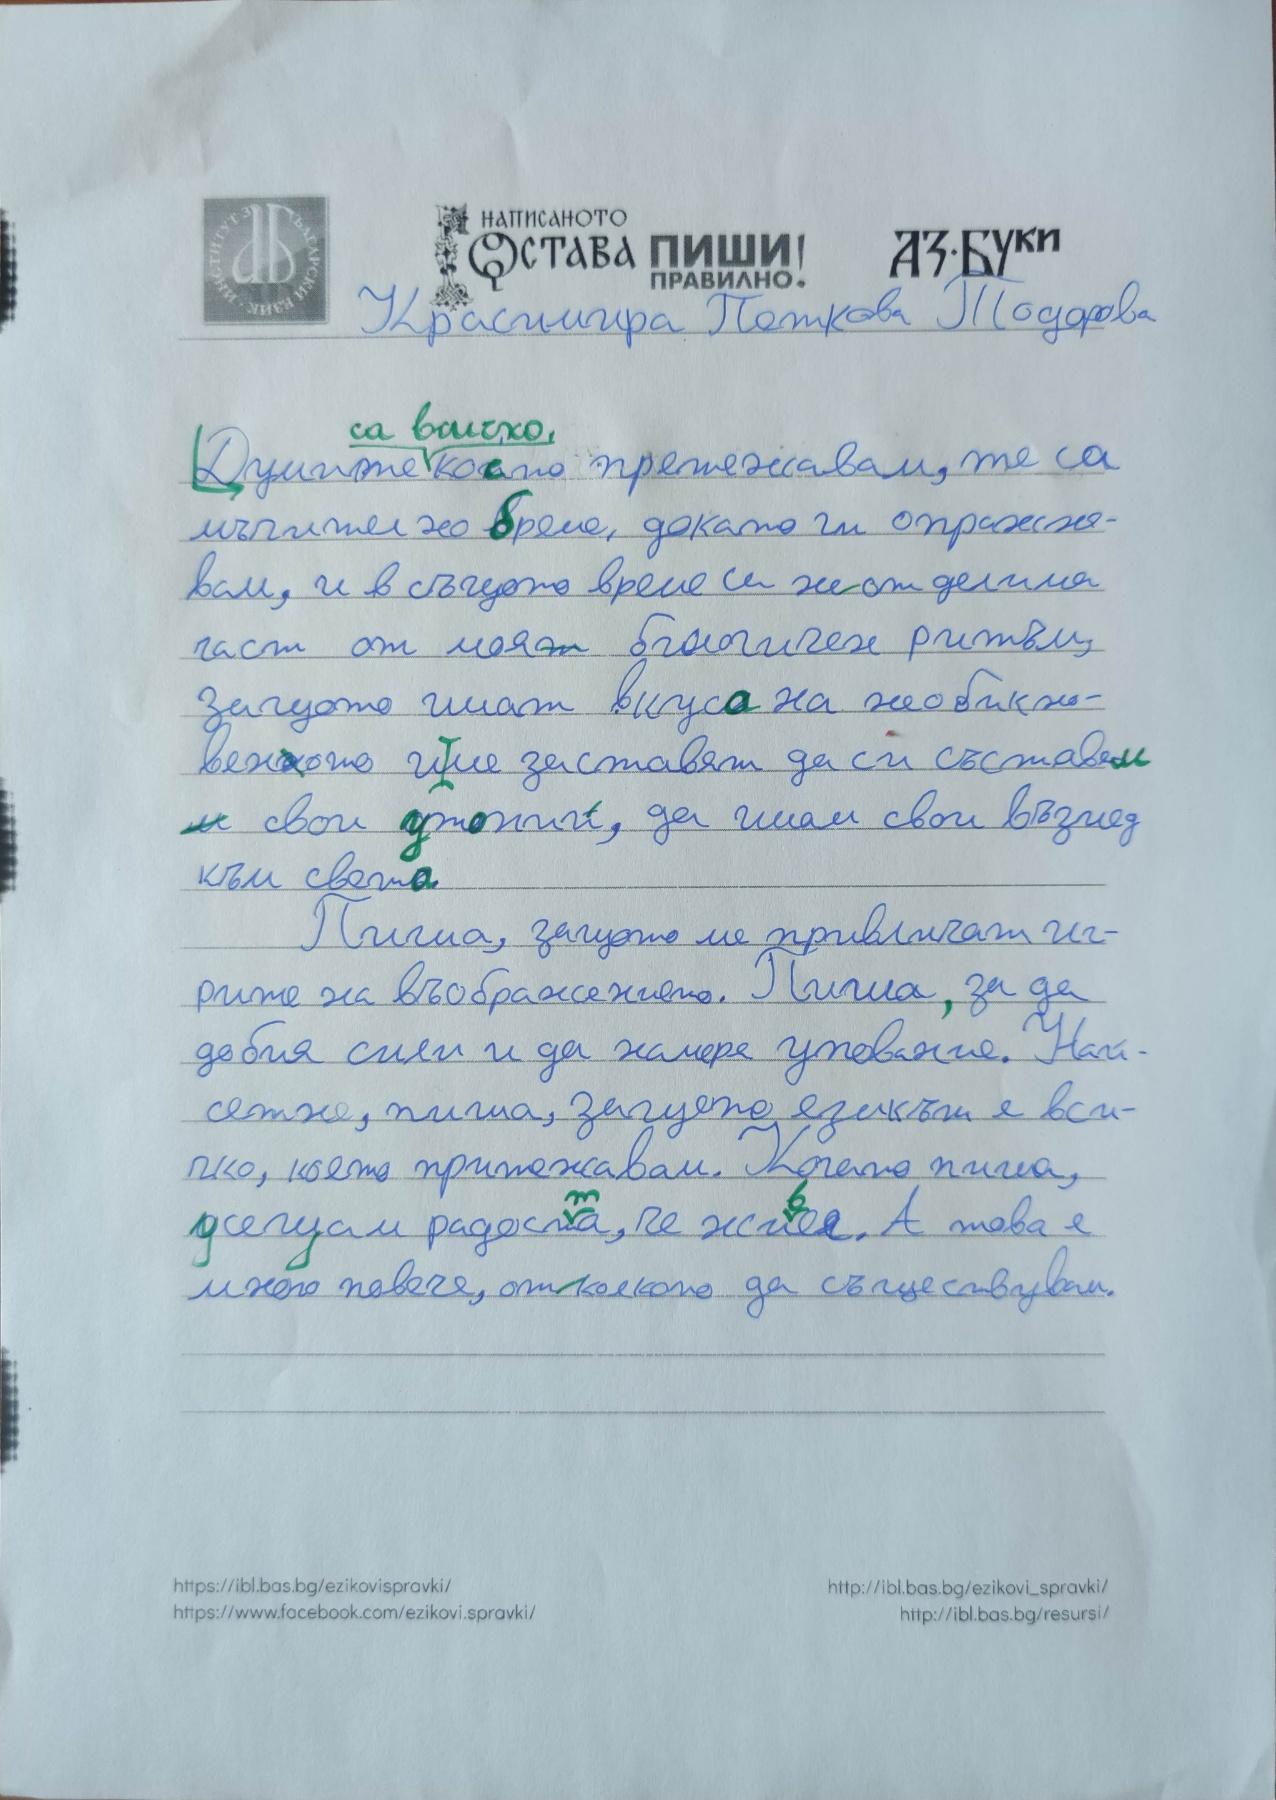 ИНСТИТУТ ЗА БЪЛГАРСКИ ЕЗИК
НАПИСАНОТО
ОСТАВА ПИШИ!
ПРАВИЛНО.
АЗ·БУКИ
Красимира Петкова Тодорова
са всичко,
Думите които притежавам, те са
мъчително бреме, докато ги опразня-
вам, и в същото време са неотделима
част от моят биологичен ритъм,
защото имат вкуса на необикно-
веното и ме заставят да си съставям
свои утопии, да имам свои възглед
към света.
Пиша, защото ме привличат иг-
рите на въображението. Пиша, за да
добия сили и да намеря упование. Най-
сетне, пиша, защото езикът е вси-
чко, което притежавам. Когато пиша,
усещам радостта, че живея. А това е
много повече, отколкото да съществувам.
https://ibl.bas.bg/ezikovispravki/
http://ibl.bas.bg/ezikovi_spravki/
https://www.facebook.com/ezikovi.spravki/
http://ibl.bas.bg/resursi/